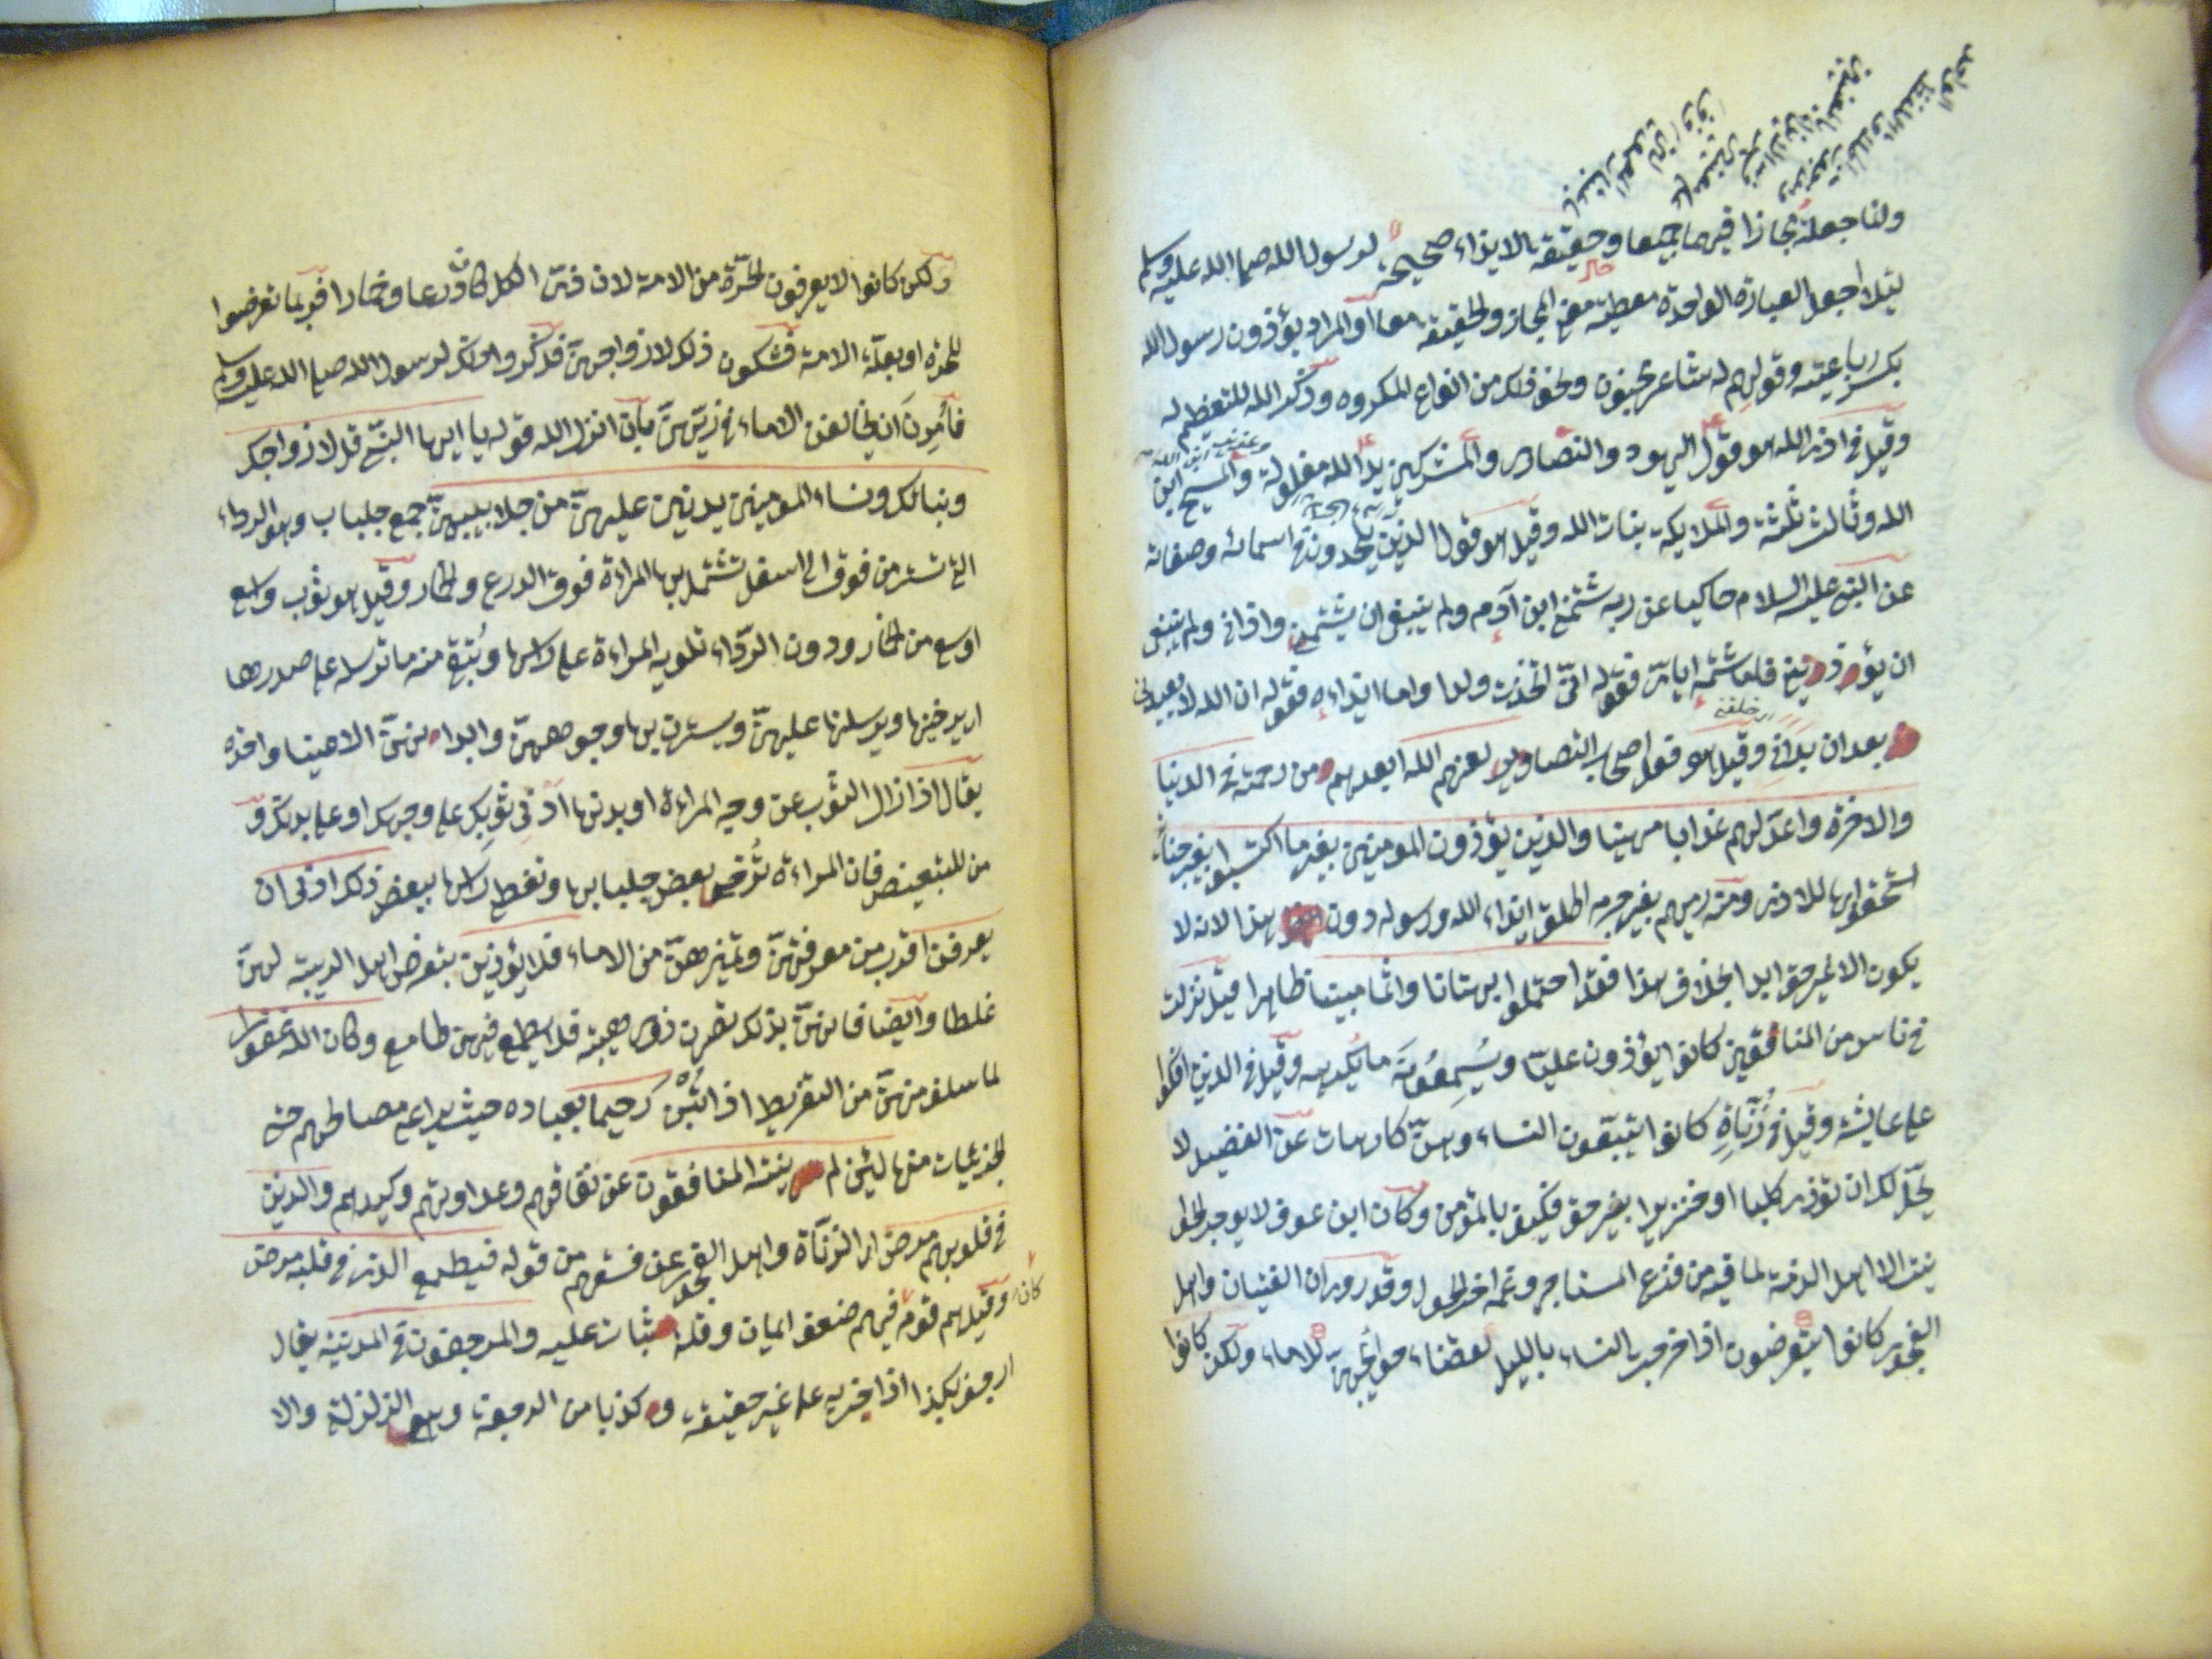 وانما جعلته مجازا فيهما جميعا وحقيقة الايذاء صحيحة لرسول الله صلى الله عليه وسلم
ليلا اجعل العبارة الواحدة معطية معنى المجاز والحقيقة معا او المراد يؤذون رسول الله
بكسر رباعيته وقولهم له شاعر مجنون ونحو ذلك من انواع المكروه وذكر الله للتعظيم له
وقيل في اذى الله هو قول اليهود والنصارى والمشركين يد الله مغلولة والمسيح ابن
الله وثالث ثلثة والملايكة بنات الله وقيل هو قول الذين يلحدون في اسمائه وصفاته
عن النبي عليه السلام حاكيا عن ربه شتمني ابن آدم ولم ينبغ ان يشتمني واذاني ولم ينبغي
ان يؤذيني فاما شتمه اياي فقوله اني اتخذت ولدا واما ايذاءه فقوله ان الله لا يعيدني
بعد ان بدأني وقيل هو قول اصحاب التصاوير لعنهم الله ابعدهم من رحمته في الدنيا
والاخرة واعد لهم عذابا مهينا والذين يؤذون المومنين بغير ما اكتسبوا بغير جناية
استحقوا بها للاذى ومنه رميهم بغير جرمه اطلق ايذاء الله ورسوله دون هذا لانه لا
يكون الا غير حق ابدا بخلاف هذا فقد احتملوا بهتانا واثما مبينا ظاهرا قيل نزلت
في ناس من المنافقين كانوا يؤذون عليا ويسمعونه ما يكرهه وقيل في الذين افكوا
على عايشة وقيل في زناة كانوا يتبعون النساء وهن كارهات عن الفضيل لا
يحل لك ان تؤذي كلبا او خنزيرا بغير حق فكيف بالمؤمن وكان ابن عوف لا يوجر الحوا
نيت الا اهل الذمة لما فيه من فزع المستاجر وغمه اخر الحول وقد روي ان الفتيان واهل
الفجور كانوا يتعرضون اذا خرجت النساء بالليل لقضاء حوائجهن للاماء ولكن كانوا
ولكن كانوا لا يعرفون الحرة من الامة لان في الكل كان درعا وخمارا فربما تعرضوا
للحرة او بعلة الامة فشكون ذلك لازواجهن فذكروا ذلك لرسول الله صلى الله عليه وسلم
فامرن ان يخالفن الاماء في زيهن بان انزل الله قوله يا ايها النبي قل لازواجك
وبناتك ونساء المومنين يدنين عليهن من جلابيبهن جمع جلباب وهو الرداء
التي تستر من فوق الى اسفل تشتمل بها المراءة فوق الدرع والخمار وقيل هو ثوب واسع
اوسع من الخمار ودون الرداء تلويه المراءة على راسها وتبقي منه ما ترسله على صدرها
اي يرخينها ويرسلنها عليهن ويسترن بها وجوههن وابدانهن الا عينا واحدة
يقال اذا زال الثوب عن وجه المراءة او بدنها ادني ثوبك على وجهك او على بدنك و
من للتبعيض فان المراءة ترخي بعض جلبابها وتغطي راسها ببعض ذلك ادنى ان
يعرفن اقرب من معرفتهن وتميزهن من الاماء فلا يؤذين بتعرض اهل الريبة لهن
غلطا وايضا فانهن بذلك تصرن ذوي هيبة فلا يطمع فيهن طامع وكان الله غفورا
لما سلف منهن من التفريط اذا تبن رحيما بعباده حيث يراعي مصالحهم حتى
الجزئيات منها لئن لم ينته المنافقون عن نفاقهم وعداوتهم وكيدهم والذين
في قلوبهم مرض اي الزناة واهل الفجور عن فسقهم من قوله فيطمع الذي في قلبه مرض
وقيل هم قوم كان فيهم ضعف ايمان وقلة ثبات عليه والمرجفون في المدينة يقال
ارجف بكذا اذا اخبر به على غير حقيقة وكذبا من الرجفة وهي الزلزلة والا